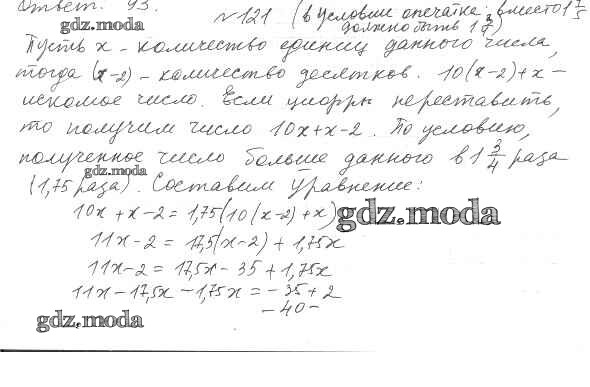 Ответ: 93.
gdz.moda
№ 121 (в условии опечатка: вместо 1 7/5
должно быть 1 3/4)
Пусть x – количество единиц данного числа,
тогда (x-2) – количество десятков. 10(x-2)+x –
искомое число. Если цифры переставить,
то получим число 10x+x-2. По условию,
полученное число больше данного в 1 3/4 раза
gdz.moda
(1,75 раза). Составим уравнение:
10x + x - 2 = 1,75(10(x-2)+x)
gdz.moda
11x - 2 = 17,5(x-2) + 1,75x
11x - 2 = 17,5x - 35 + 1,75x
11x - 17,5x - 1,75x = -35 + 2
- 40 -
gdz.moda